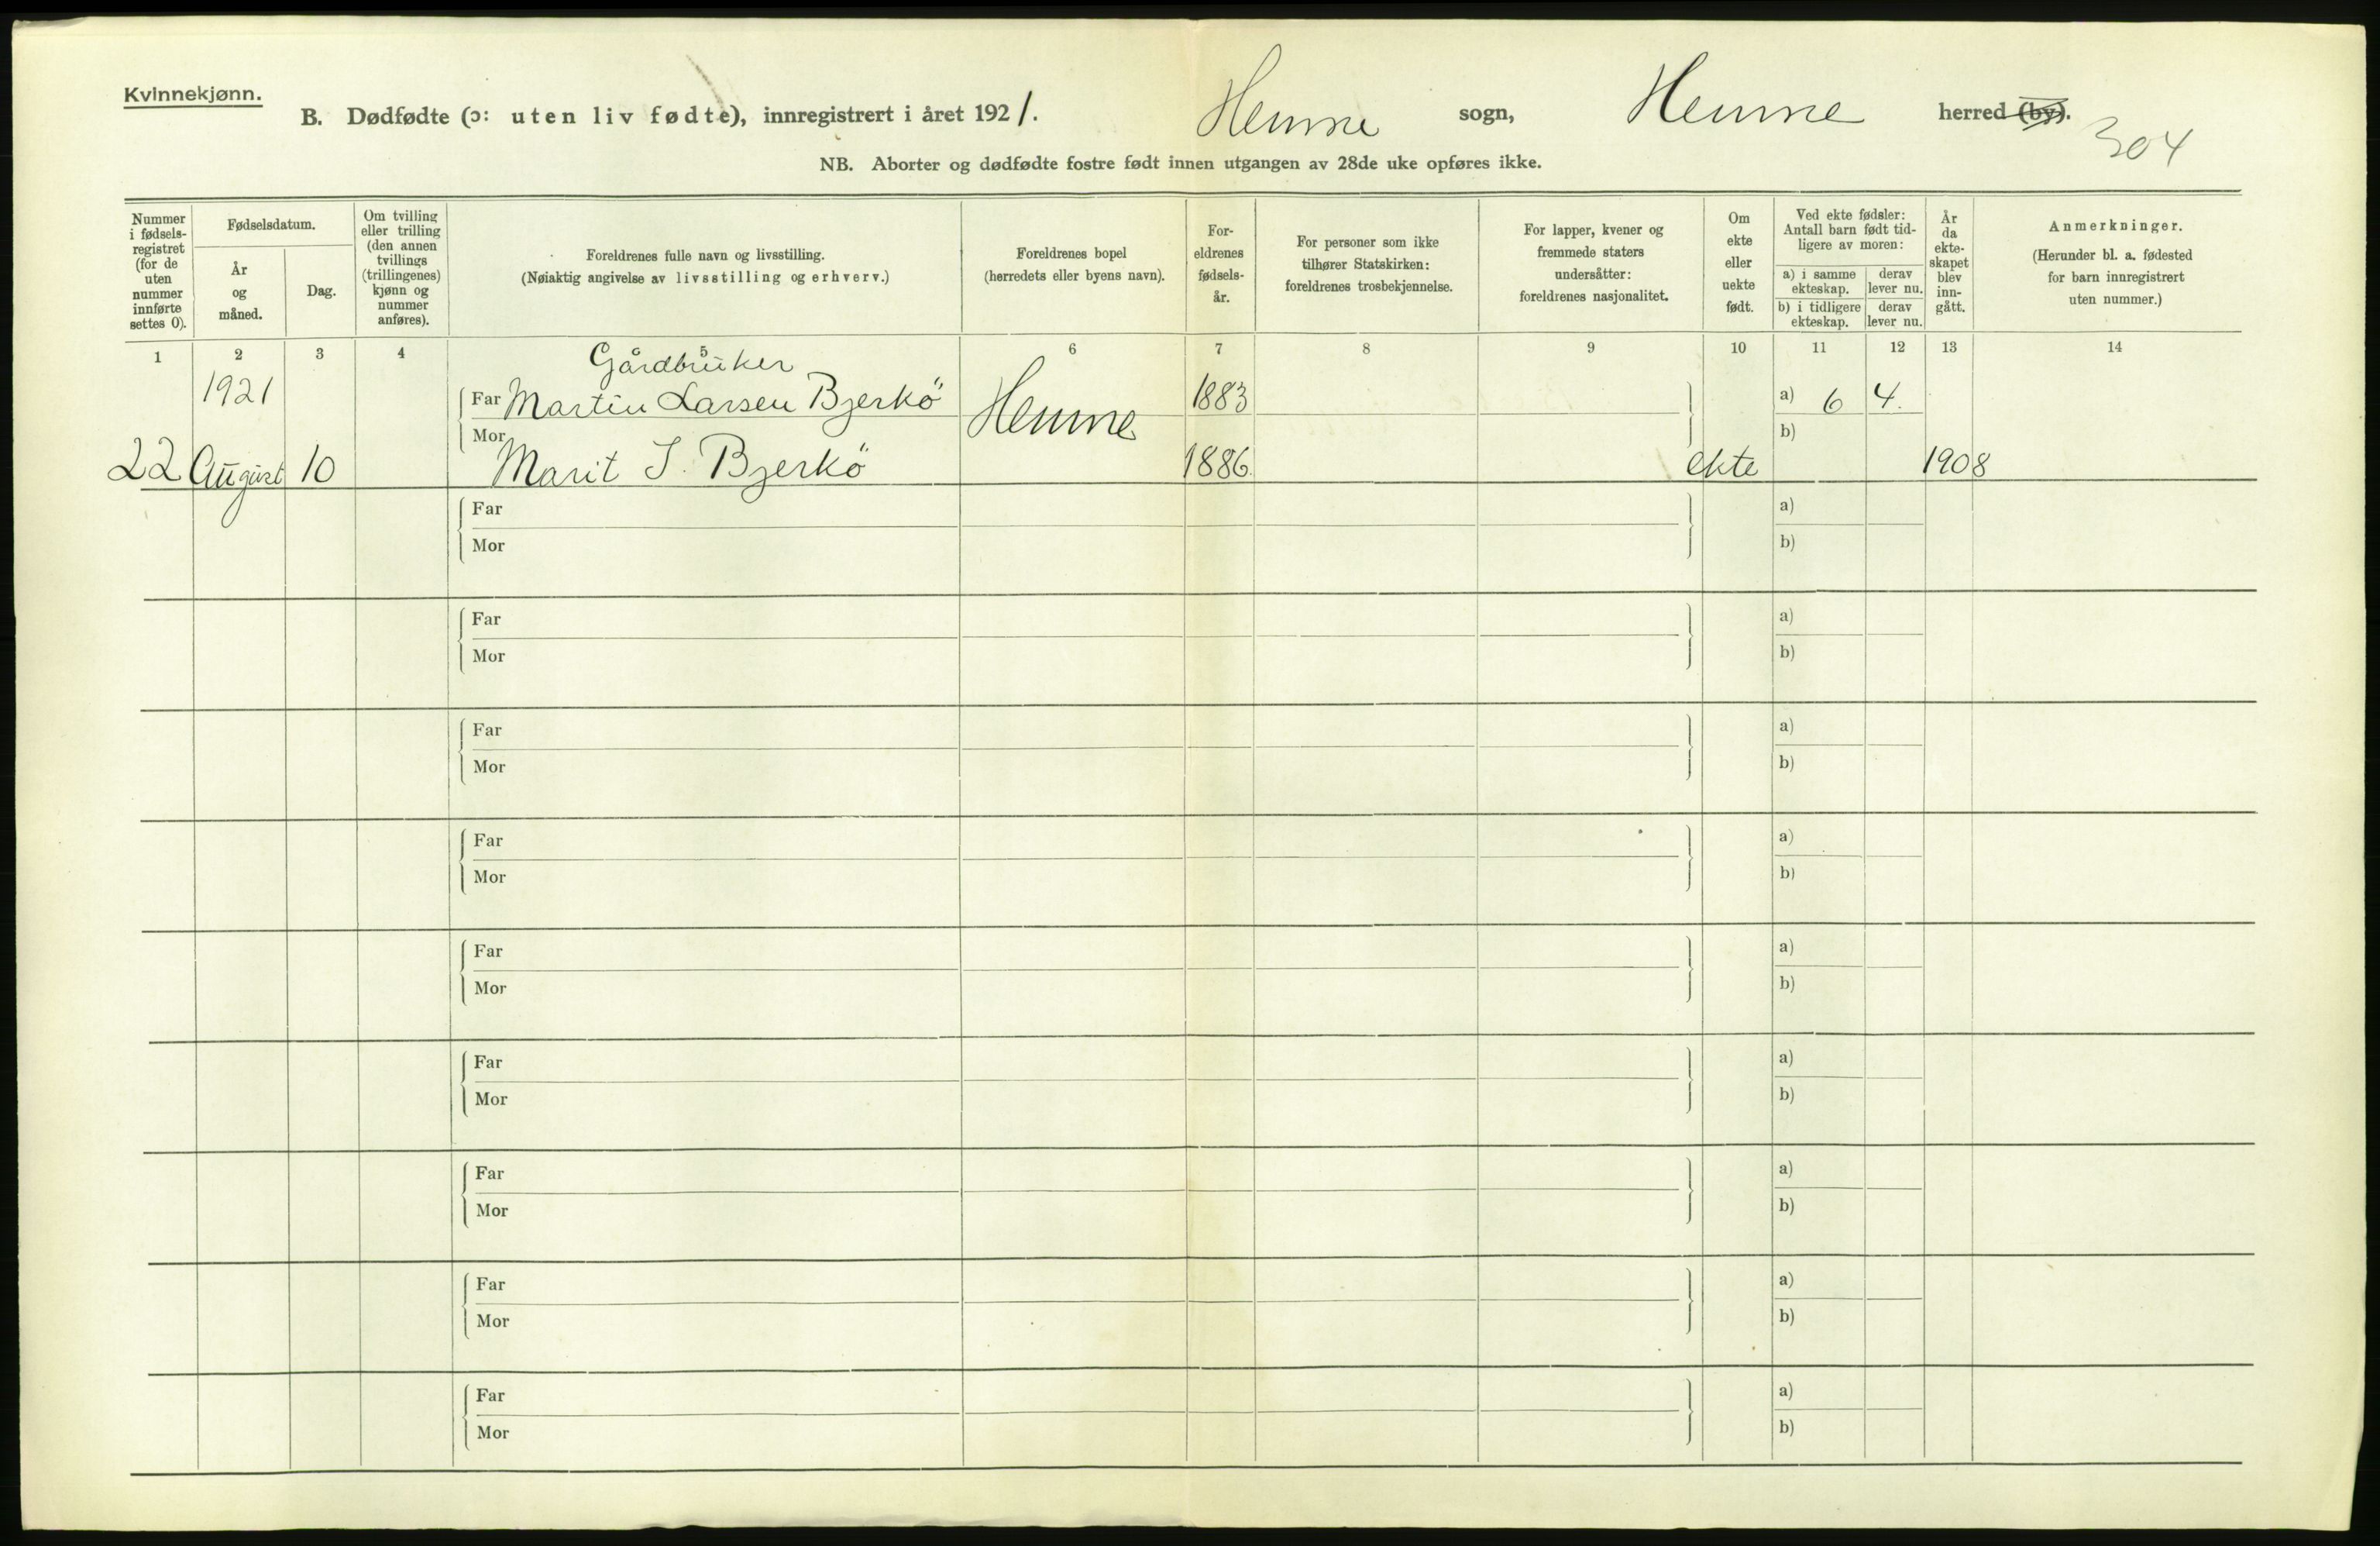 Kvinnekjønn.
B. Dødfødte (ɔ: uten liv fødte), innregistrert i året 1921. Hemne sogn, Hemne herred (by).
304
NB. Aborter og dødfødte fostre født innen utgangen av 28de uke opføres ikke.
Nummer i fødsels-registret (for de uten nummer innførte settes 0).
Fødselsdatum.
År og måned.
Dag.
Om tvilling eller trilling (den annen tvillings (trillingenes) kjønn og nummer anføres).
Foreldrenes fulle navn og livsstilling.
(Nøiaktig angivelse av livsstilling og erhverv.)
Foreldrenes bopel
(herredets eller byens navn).
For-eldrenes fødsels-år.
For personer som ikke tilhører Statskirken: foreldrenes trosbekjennelse.
For lapper, kvener og fremmede staters undersåtter: foreldrenes nasjonalitet.
Om ekte eller uekte født.
Ved ekte fødsler: Antall barn født tid-ligere av moren:
a) i samme ekteskap. derav lever nu.
b) i tidligere ekteskap. derav lever nu.
År da ekte-skapet blev inn-gått.
Anmerkninger.
(Herunder bl. a. fødested for barn innregistrert uten nummer.)
1 2 3 4 5 6 7 8 9 10 11 12 13 14
Gårdbruker
1921 Far Martin Larsen Bjerkö Hemne 1883 a) 6 4.
Mor b)
22 August 10 Marit J. Bjerkö 1886. ekte 1908
Far a)
Mor b)
Far a)
Mor b)
Far a)
Mor b)
Far a)
Mor b)
Far a)
Mor b)
Far a)
Mor b)
Far a)
Mor b)
Far a)
Mor b)
Far a)
Mor b)